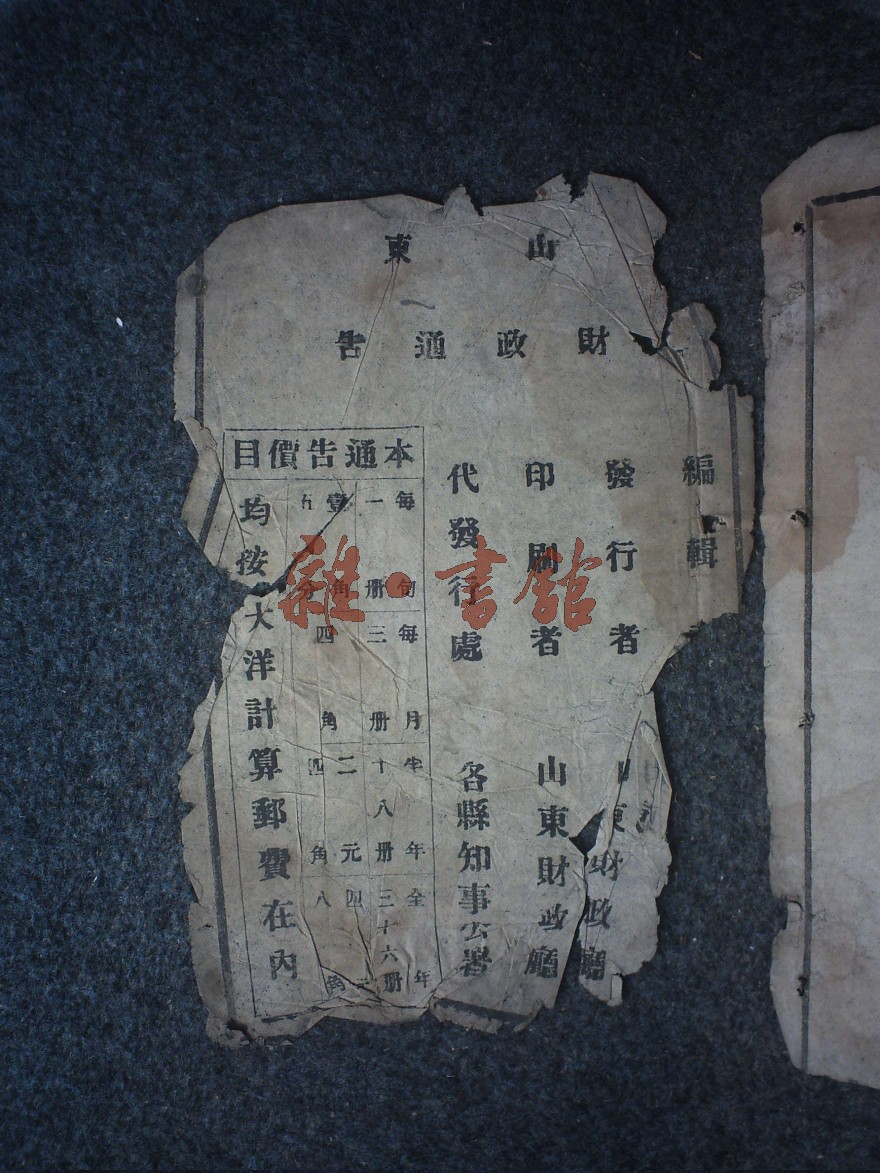 山東
財政通告
編輯
發行者　東財政廳
印刷者　山東財政廳
代發行處　各縣知事公署
本通告價目
每旬　每月　半年　全年
一册　三册　十八册　三十六册
壹角五分　四角　二元四角　四元八角
均按大洋計算郵費在內
雜·書館